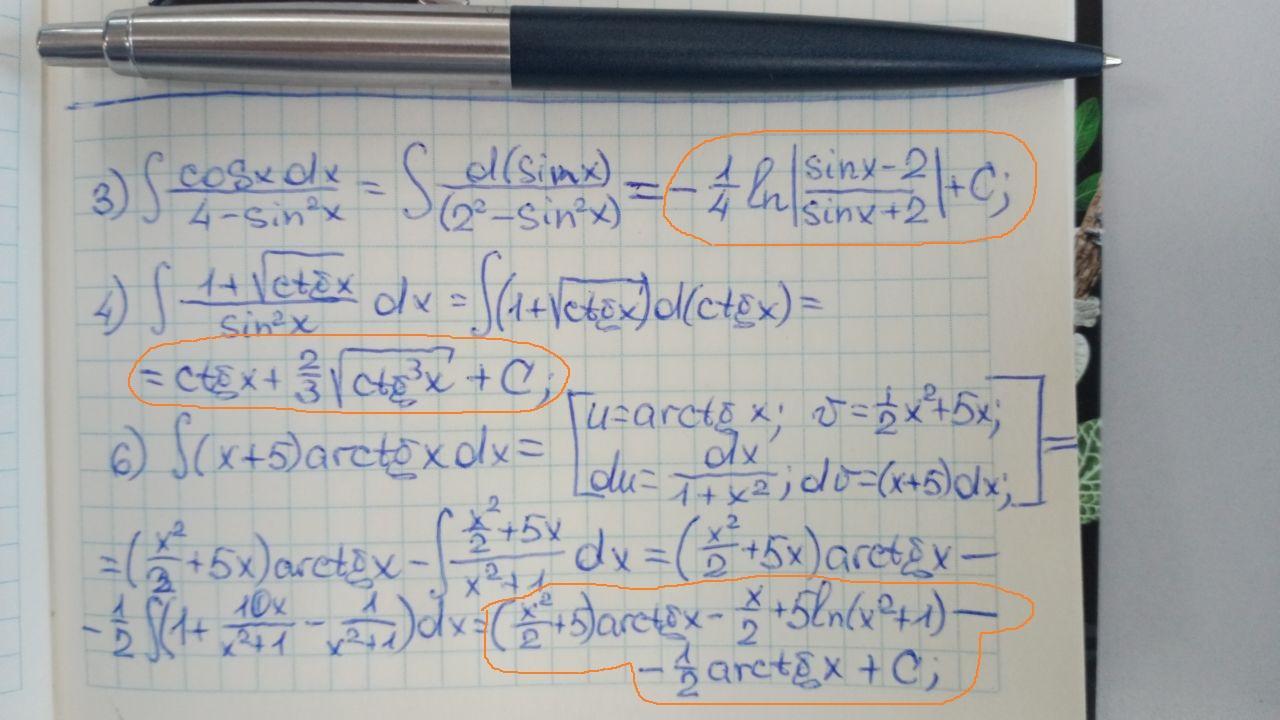 3) ∫ cosx dx / 4 - sin²x = ∫ d(sinx) / (2² - sin²x) = - 1/4 ln |sinx - 2 / sinx + 2| + C;
4) ∫ 1 + √ctgx / sin²x dx = ∫(1 + √ctgx) d(ctgx) =
= ctgx + 2/3 √ctg³x + C;
6) ∫(x+5)arctgx dx = [u = arctgx; v = 1/2 x² + 5x; du = dx / 1 + x²; dv = (x+5)dx;] =
= (x²/2 + 5x)arctgx - ∫ x²/2 + 5x / x² + 1 dx = (x²/2 + 5x)arctgx -
- 1/2 ∫(1 + 10x / x²+1 - 1 / x²+1)dx = (x²/2 + 5)arctgx - x/2 + 5ln(x²+1) -
- 1/2 arctgx + C;